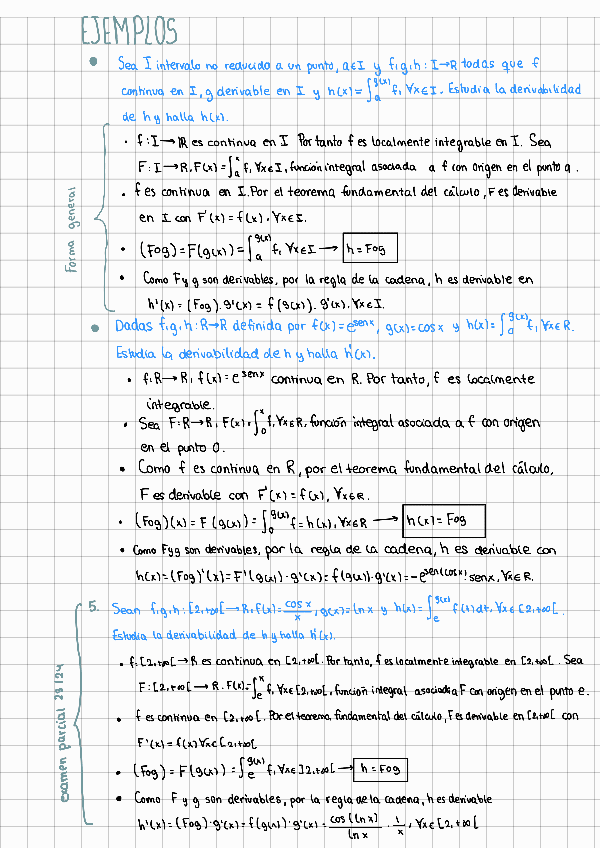 EJEMPLOS
• Sea I intervalo no reducido a un punto, a∈I y f,g,h: I→R todas que f
continua en I, g derivable en I y h(x)=∫_a^{g(x)} f, ∀x∈I. Estudia la derivabilidad
de h y halla h'(x).
Forma general
• f: I→R es continua en I. Por tanto f es localmente integrable en I. Sea
F: I→R, F(x)=∫_a^x f, ∀x∈I, función integral asociada a f con origen en el punto a.
• f es continua en I. Por el teorema fundamental del cálculo, F es derivable
en I con F'(x)=f(x), ∀x∈I.
• (Fog)=F(g(x))=∫_a^{g(x)} f, ∀x∈I → h=Fog
• Como F y g son derivables, por la regla de la cadena, h es derivable en
h'(x)=(Fog).g'(x)=f(g(x)).g'(x), ∀x∈I.
• Dadas f,g,h: R→R definida por f(x)=e^{senx}, g(x)=cosx y h(x)=∫_a^{g(x)} f, ∀x∈R.
Estudia la derivabilidad de h y halla h'(x).
• f: R→R, f(x)=e^{senx} continua en R. Por tanto, f es localmente
integrable.
• Sea F: R→R, F(x)=∫_0^x f, ∀x∈R, función integral asociada a f con origen
en el punto 0.
• Como f es continua en R, por el teorema fundamental del cálculo,
F es derivable con F'(x)=f(x), ∀x∈R.
• (Fog)(x)=F(g(x))=∫_0^{g(x)} f=h(x), ∀x∈R → h(x)=Fog
• Como F y g son derivables, por la regla de la cadena, h es derivable con
h(x)=(Fog)'(x)=F'(g(x))·g'(x)=f(g(x))·g'(x)=-e^{sen(cosx)} senx, ∀x∈R.
examen parcial 23/24
5. Sean f,g,h: [2,+∞[→R, f(x)=cosx/x, g(x)=lnx y h(x)=∫_e^{g(x)} f(t)dt, ∀x∈[2,+∞[.
Estudia la derivabilidad de h y halla h'(x).
• f: [2,+∞[→R es continua en [2,+∞[. Por tanto, f es localmente integrable en [2,+∞[. Sea
F: [2,+∞[→R, F(x)=∫_e^x f, ∀x∈[2,+∞[, función integral asociada a F con origen en el punto e.
• f es continua en [2,+∞[. Por el teorema fundamental del cálculo, F es derivable en [2,+∞[ con
F'(x)=f(x) ∀x∈[2,+∞[
• (Fog)=F(g(x))=∫_e^{g(x)} f, ∀x∈]2,+∞[→ h=Fog
• Como F y g son derivables, por la regla de la cadena, h es derivable
h'(x)=(Fog)·g'(x)=f(g(x))·g'(x)=cos(lnx)/lnx · 1/x, ∀x∈[2,+∞[